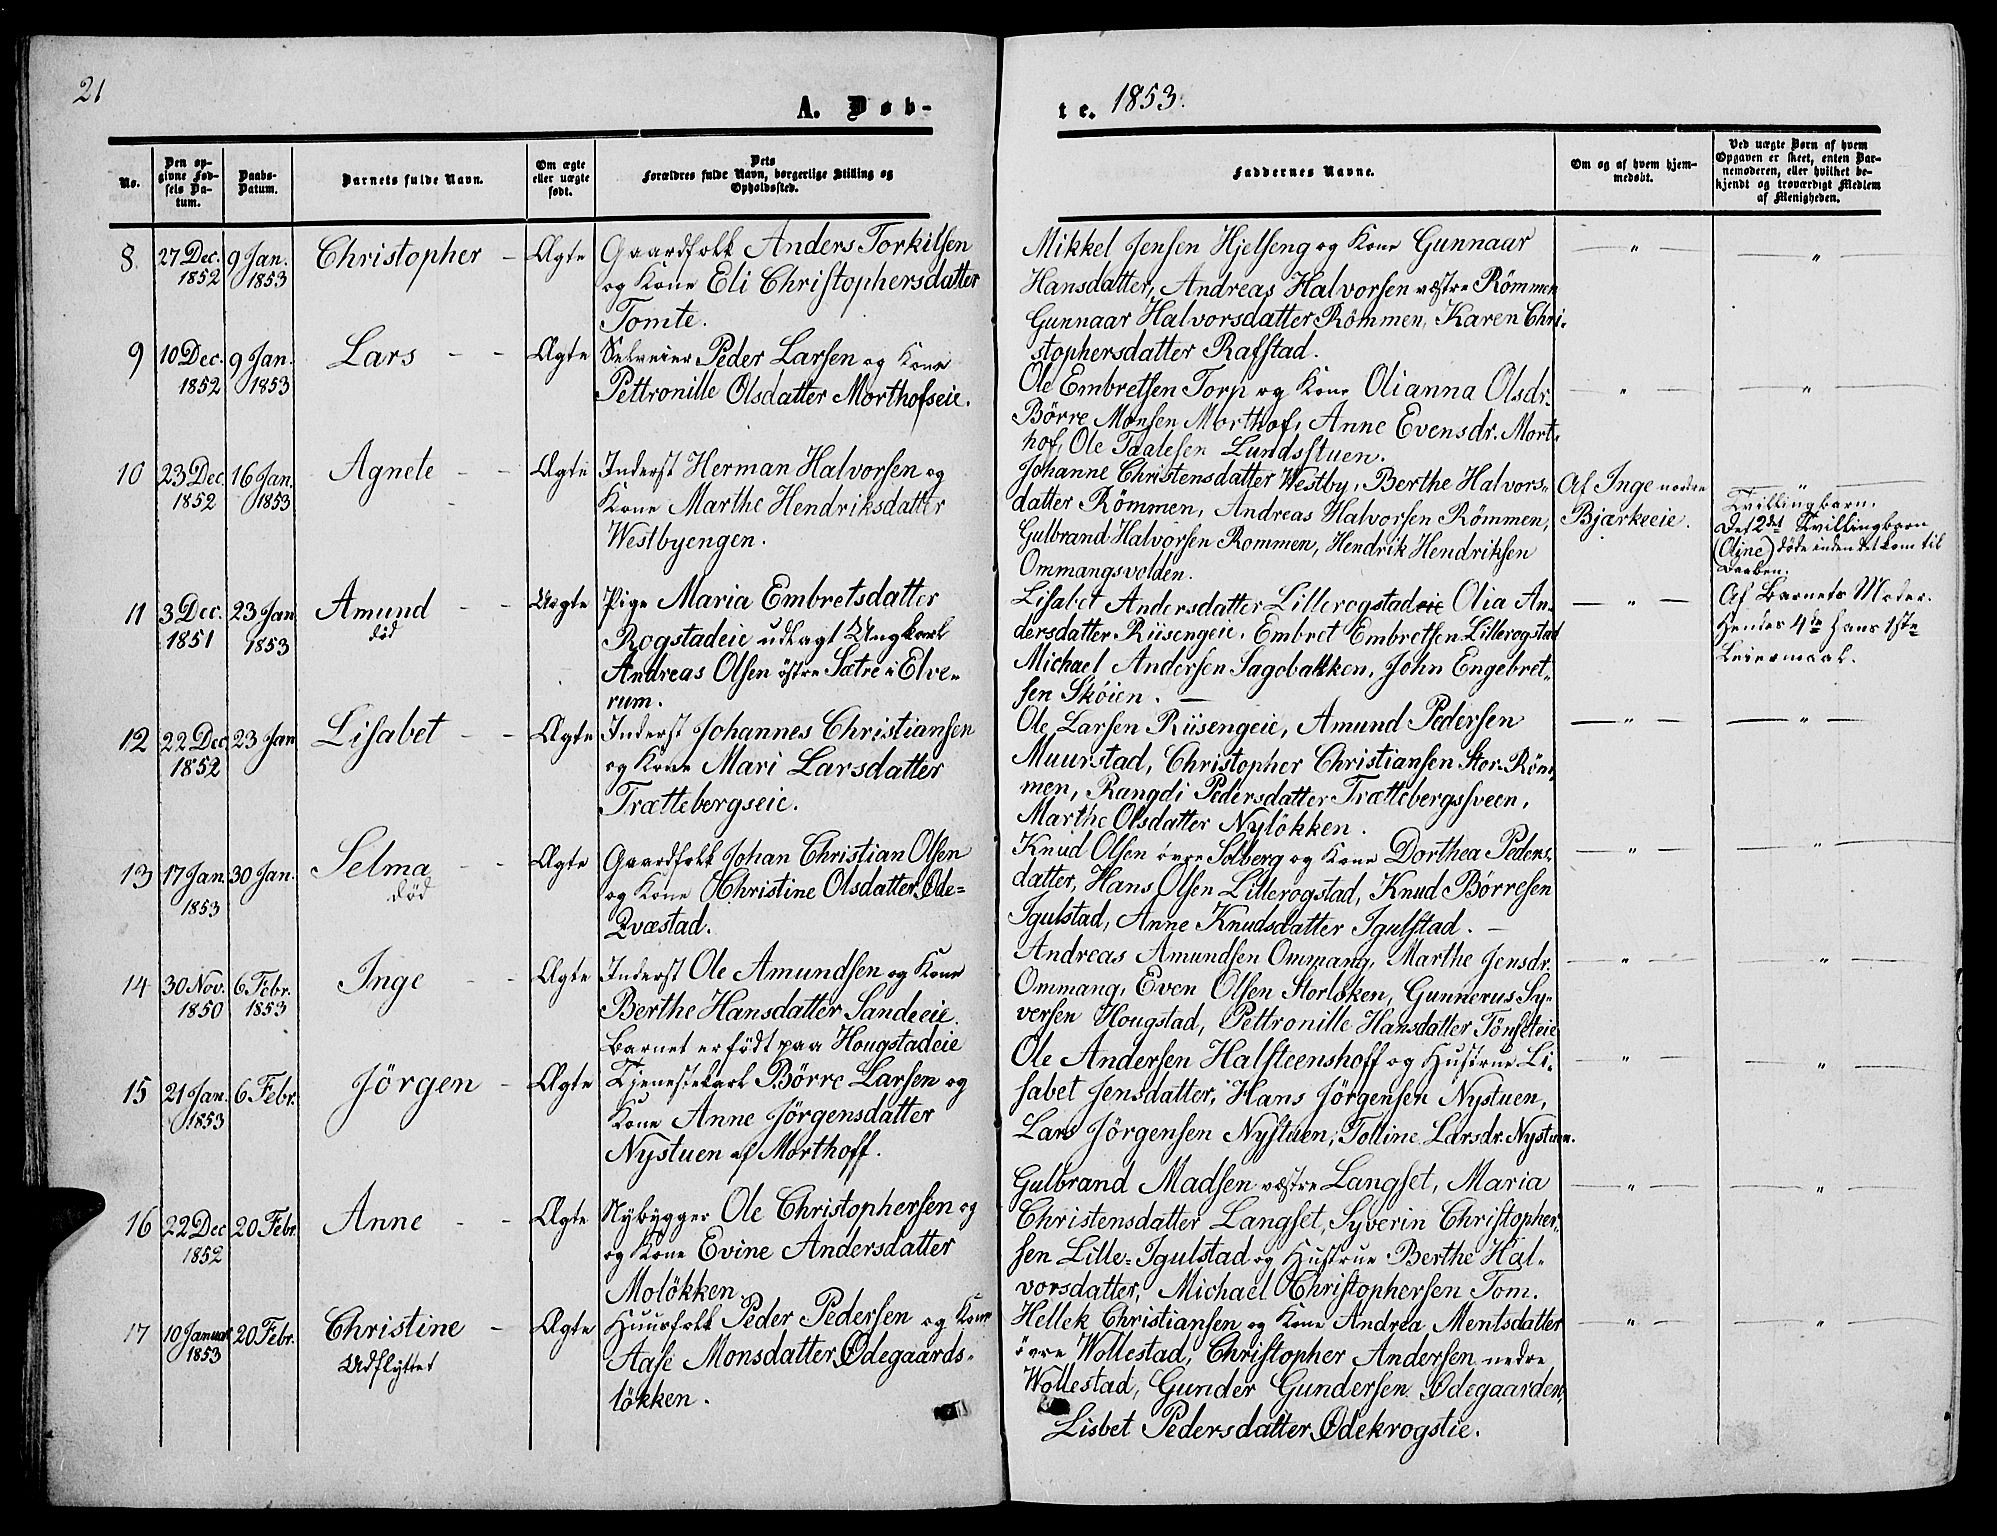 21
A. Døb-
te. 1853.
No.
Den op-
givne Fød-
sels Da-
tum.
Daabs-
Datum.
Barnets fulde Navn.
Om ægte
eller uægte
født.
Dets
Forældres fulde Navn, borgerlige Stilling og
Opholdssted.
Faddernes Navne.
Om og af hvem hjem-
medøbt.
Ved uægte Børn af hvem
Opgaven er skeet, enten Bar-
nemoderen, eller hvilket be-
kjendt og troværdigt Medlem
af Menigheden.
8. 27 Dec. 1852 9 Jan. 1853 Christopher - Ægte
Gaardfolk Anders Torkilsen
og Kone Eli Christophersdatter
Tomte.
Mikkel Jensen Hjelseng og Kone Gunnaur
Hansdatter, Andreas Halvorsen væstre Römmen
Gunnaar Halvorsdatter Römmen, Karen Chri-
stophersdatter Rafstad.
— " —
— " —
9 10 Dec. 1852 9 Jan. 1853 Lars - - Ægte
Selveier Peder Larsen og Kone
Pettronille Olsdatter Morthofseie.
Ole Embretsen Torp og Kone Olianna Olsdr.
Börre Monsen Morthof, Anne Evensdr. Mort-
hof, Ole Taalesen Lundsstuen.
— " —
— " —
10 23 Dec. 1852 16 Jan. 1853 Agnete - - Ægte
Inderst Herman Halvorsen og
Kone Marthe Hendriksdatter
Westbyengen.
Johanne Christensdatter Westby, Berthe Halvors-
datter Römmen, Andreas Halvorsen Römmen,
Gulbrand Halvorsen Rommen, Hendrik Hendriksen
Ommangsvolden.
Af Inge nordre
Bjærkeeie.
Tvillingbarn.
Det 2det Tvillingbarn
(Oline) döde inden det kom til
Daaben.
11 3 Dec. 1851 23 Jan 1853 Amund - - Uægte
död
Pige Maria Embretsdatter
Rogstadeie udlagt Ungkarl
Andreas Olsen östre Sætre i Elve-
rum.
Lisabet Andersdatter Lillerogstadeie Olia An-
dersdatter Riisengeie, Embret Embretsen Lillerogstad
Michael Andersen Sagobakken, John Engebret-
sen Sköien. —
— " —
Af Barnets Moder.
Hendes 4de Hans 1ste
Leiermaal.
12 22 Dec 1852 23 Jan Lisabet - - Ægte
Inderst Johannes Christiansen
og Kone Mari Larsdatter
Trættebergseie.
Ole Larsen Riisengeie, Amund Pedersen
Muurstad, Christopher Christiansen Stor-Röm-
men, Rangdi Pedersdatter Trættebergssveen,
Marthe Olsdatter Nylökken.
— " —
— " —
13 17 Jan. 1853 30 Jan. Selma - - Ægte
död
Gaardfolk Johan Christian Olsen
og Kone Christine Olsdatter Öde-
Qvæstad.
Knud Olsen övre Solberg og Kone Dorthea Peders-
datter, Hans Olsen Lillerogstad, Knud Börresen
Igulstad, Anne Knudsdatter Igulstad. —
— " —
— " —
14 30 Nov. 1850 6 Febr. 1853 Inge - - Ægte
Inderst Ole Amundsen og Kone
Berthe Hansdatter Sandeeie.
Barnet er födt paa Hougstadeie
Andreas Amundsen Ommang, Marthe Jensdr.
Ommang, Even Olsen Storlöken, Gunnerus Sy-
versen Hougstad, Pettronille Hansdatter Tönseteie
— " —
— " —
15 21 Jan. 1853 6 Febr. Jörgen - Ægte
Tjenestekarl Börre Larsen og
Kone Anne Jörgensdatter
Nystuen af Morthoff.
Ole Andersen Halsteenshoff og Hustrue Li-
sabet Jensdatter, Hans Jörgensen Nystuen,
Lars Jörgensen Nystuen, Tolline Larsdr. Nystuen.
— " —
— " —
16 22 Dec 1852 20 Febr. Anne - - Ægte
Nybygger Ole Christophersen og
og Kone Evine Andersdatter
Molökken.
Gulbrand Madsen væstre Langset, Maria
Christensdatter Langset, Syverin Christopher-
sen Lille-Igulstad og Hustrue Berthe Hal-
vorsdatter, Michael Christophersen Tom.
— " —
— " —
17 10 Januar 1853 20 Febr. Christine - Ægte
Udflyttet
Huusfolk Peder Pedersen og Kone
Aase Monsdatter Ödegaards-
lökken.
Hellek Christiansen og Kone Andrea Mentsdatter
övre Wollestad, Christopher Andersen nedre
Wollestad, Gunder Gundersen Ödegaarden,
Lisbet Pedersdatter Ödekrogstie.
— " —
— " —